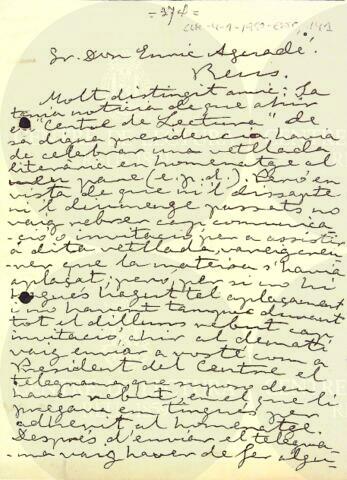 = 374 =
Sr. Don Enric Aguadé.
Reus.
Molt distingit amic: Ja
tenia noticia de que ahir
el "Centre de Lectura" de
sa digna presidencia havia
de celebrar una vetllada
literaria en homenatge al
meu pare (e.p.d.). Pero en
vista de que ni'l dissapte
ni'l diumenge passats no
vaig rebrer cap comunica-
ció o invitació per a assistir
a dita vetllada, vareig creu-
rer que la mateixa s'havia
aplasat; pero per si no hi
hagués hagut tal aplasament
i no havent tampoc durant
tot el dilluns rebut cap
invitació, ahir al dematí
vaig enviar a vosté com a
President del Centre el
telegrama que suposo deu
haver rebut, en el que li
pregava em tingués per
adherit al homenatge.
Després d'enviar el telegra-
ma vaig haver de fer algu-